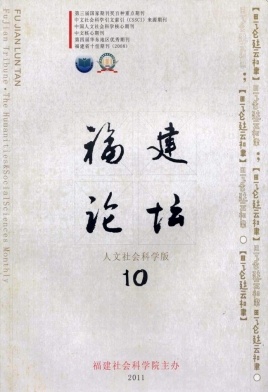 FUJIANLUNTAN
FuJian Tribune·The Humanities&SocialSciences Monthly
第三届国家期刊奖百种重点期刊
中文社会科学引文索引（CSSCI）来源期刊
中国人文社会科学核心期刊
中文核心期刊
第四届华东地区优秀期刊
福建省十佳期刊（2008）
福建
论坛
人文社会科学版
10
福建社会科学院主办
2011